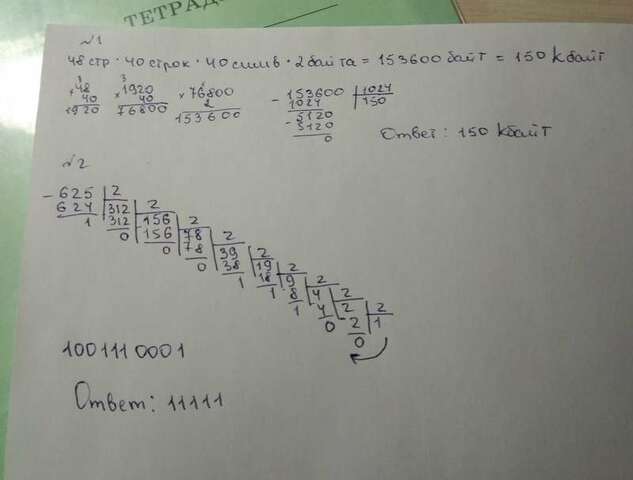 ТЕТРАД
№1
48 стр · 40 строк · 40 симв · 2 байта = 153600 байт = 150 Кбайт
48 1920 76800 153600 1024
40 40 2 1024 150
1920 76800 153600 5120
5120
0
Ответ: 150 Кбайт
№2
625 2
624 312 2
1 312 156 2
0 156 78 2
0 78 39 2
0 38 19 2
1 18 9 2
1 8 4 2
1 4 2 2
0 2 1
0
1001110001
Ответ: 11111